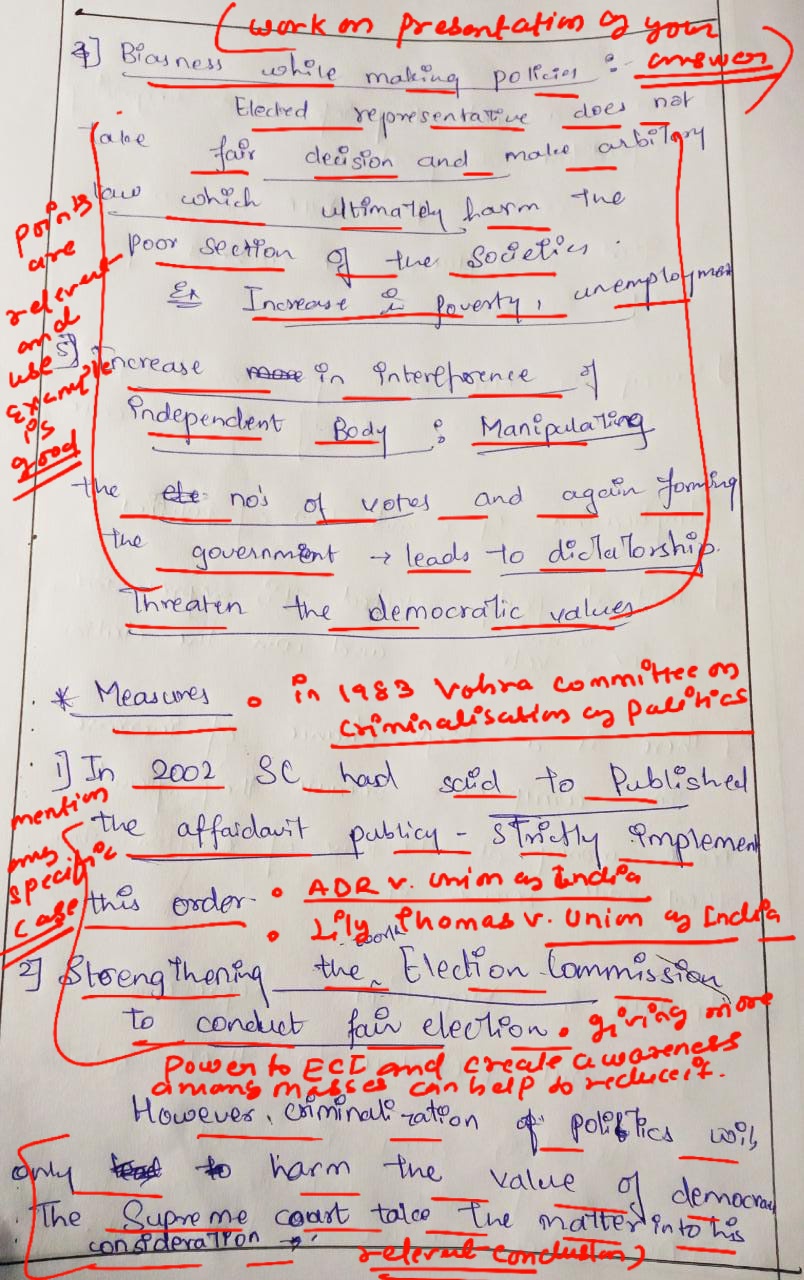 (work on presentation of your
answer)
4] Biasness while making policies :-
Elected representative does not
take fair decision and make arbitary
law which ultimately harm the
poor section of the Societies.
Ex Increase in Poverty, unemployment
points
are
relevent
and
use
example
is
good
5] Increase in interference of
independent Body : Manipulating
the no's of votes and again forming
the government → leads to dictatorship.
Threaten the democratic values
* Measures • in 1983 Vohra committee on
criminalisation of politics
1] In 2002 SC had said to Published
the affaidavit publicy - Strictly implement
this order. • ADR v. Union of India
• Lily Thomas v. Union of India
mention
specific
case
2] Strengthening the work Election Commission
to conduct fair election. • giving more
power to ECI and create awareness
among masses can help to reduce it.
However, criminalization of politics will
only harm the value of democracy
The Supreme court take the matter into his
consideration →
relevent conclusion)